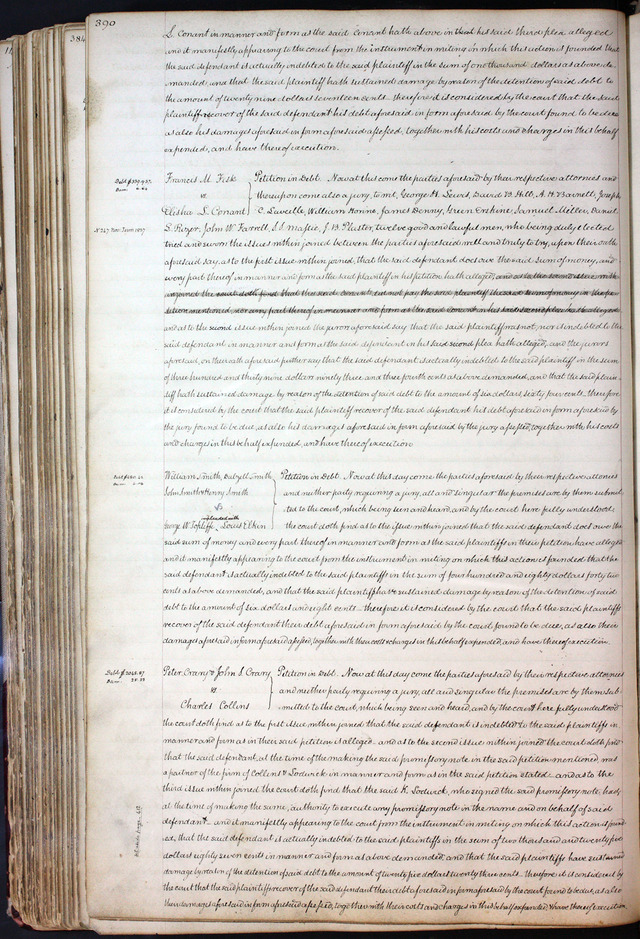 390
384
S. Conant in manner and form as the said Conant hath above in his said third plea alleged
and it manifestly appearing to the court from the instrument in writing on which this action is founded that
the said defendant is actually indebted to the said plaintiff in the sum of one thousand dollars as above de
manded, and that the said plaintiff hath sustained damage by reason of the detention of said debt to
the amount of twenty nine dollars seventeen cents therefore it is considered by the court that the said
plaintiff recover of the said defendant his debt aforesaid, in form aforesaid by the court found to be due
as also his damages aforesaid in form aforesaid assessed, together with his costs and charges in this behalf
expended, and have thereof execution.
Francis M. Fisk
vs
Elisha S. Conant
Petition in Debt. Now at this come the parties aforesaid by their respective attornies and
thereupon come also a jury, to wit, George H. Lewis, David B. Hill, A. H. Barnett, Joseph
C. Laveille, William Horine, James Denny, Green Erskine, Samuel Miller, Daniel
No 247 Nov: Term 1837
S. Royer, John W. Farrell, S S Massie, J. B. Plaster, twelve good and lawful men, who being duly elected
tried and sworn the issues within joined between the parties aforesaid well and truly to try, upon their oath
aforesaid say, as to the first issue within joined, that the said defendant does owe the said sum of money, and
every part thereof in manner and form as the said plaintiff in his petition hath alleged, and as to the second issue with
in joined the said doth find that the said did not pay the said plaintiff the said sum of money in the pe
tition mentioned, nor any part thereof in manner and form as the said Conant in his said second plea hath alleged
and as to the second issue within joined the jurors aforesaid say that the said plaintiff was not, nor is indebted to the
said defendant in manner and form as the said defendant in his said second plea hath alleged, and the jurors
aforesaid, on their oath aforesaid further say that the said defendant is actually indebted to the said plaintiff in the sum
of three hundred and thirty nine dollars ninety three and three fourth cents as above demanded, and that the said plain
tiff hath sustained damage by reason of the detention of said debt to the amount of six dollars sixty four cents, therefore
it is considered by the court that the said plaintiff recover of the said defendant his debt aforesaid in form aforesaid by
the jury found to be due, as also his damages aforesaid in form aforesaid by the jury assessed, together with his costs
and charges in this behalf expended, and have thereof execution.
William Smith, Dalzell Smith
John Smith & Henry Smith
vs
George W. Topliffe impleaded with Louis Elkin
Petition in Debt. Now at this day come the parties aforesaid by their respective attornies
and neither party requiring a jury, all and singular the premises are by them submit
ted to the court, which being seen and heard, and by the court here fully understood;
the court doth find as to the issue within joined that the said defendant does owe the
said sum of money and every part thereof in manner and form as the said plaintiffs in their petition have alleged
and it manifestly appearing to the court from the instrument in writing on which this action is founded that the
said defendant is actually indebted to the said plaintiffs in the sum of four hundred and eighty dollars forty two
cents as above demanded, and that the said plaintiffs have sustained damage by reason of the detention of said
debt to the amount of six dollars and eight cents therefore it is considered by the court that the said plaintiffs
recover of the said defendant their debt aforesaid in form aforesaid by the court found to be due, as also their
damages aforesaid in form aforesaid assessed, together with their costs & charges in this behalf expended, and have thereof execution.
Debt $2025.87
Dam 25.23
Peter Crary & John S. Crary
vs
Charles Collins
Petition in Debt. Now at this day come the parties aforesaid by their respective attornies
and neither party requiring a jury, all and singular the premises are by them sub
mitted to the court, which being seen and heard, and by the court here fully understood
the court doth find as to the first issue within joined that the said defendant is indebted to the said plaintiffs in
manner and form as in their said petition is alleged and as to the second issue within joined the court doth find
that the said defendant, at the time of the making the said promissory note in the said petition mentioned, was
a partner of the firm of Collins & Lodwick in manner and form as in the said petition stated and as to the
third issue within joined the court doth find that the said K. Lodwick, who signed the said promissory note, had,
at the time of making the same, authority to execute any promissory note in the name and on behalf of said
defendant and it manifestly appearing to the court from the instrument in writing on which this action is found
ed, that the said defendant is actually indebted to the said plaintiffs in the sum of two thousand and twenty five
dollars eighty seven cents in manner and form as above demanded, and that the said plaintiffs have sustained
damage by reason of the detention of said debt to the amount of twenty five dollars twenty three cents. therefore it is considered by
the court that the said plaintiffs recover of the said defendant their debt aforesaid in form aforesaid by the court found to be due, as also
their damages aforesaid in form aforesaid assessed, together with their costs and charges in this behalf expended, & have thereof execution.